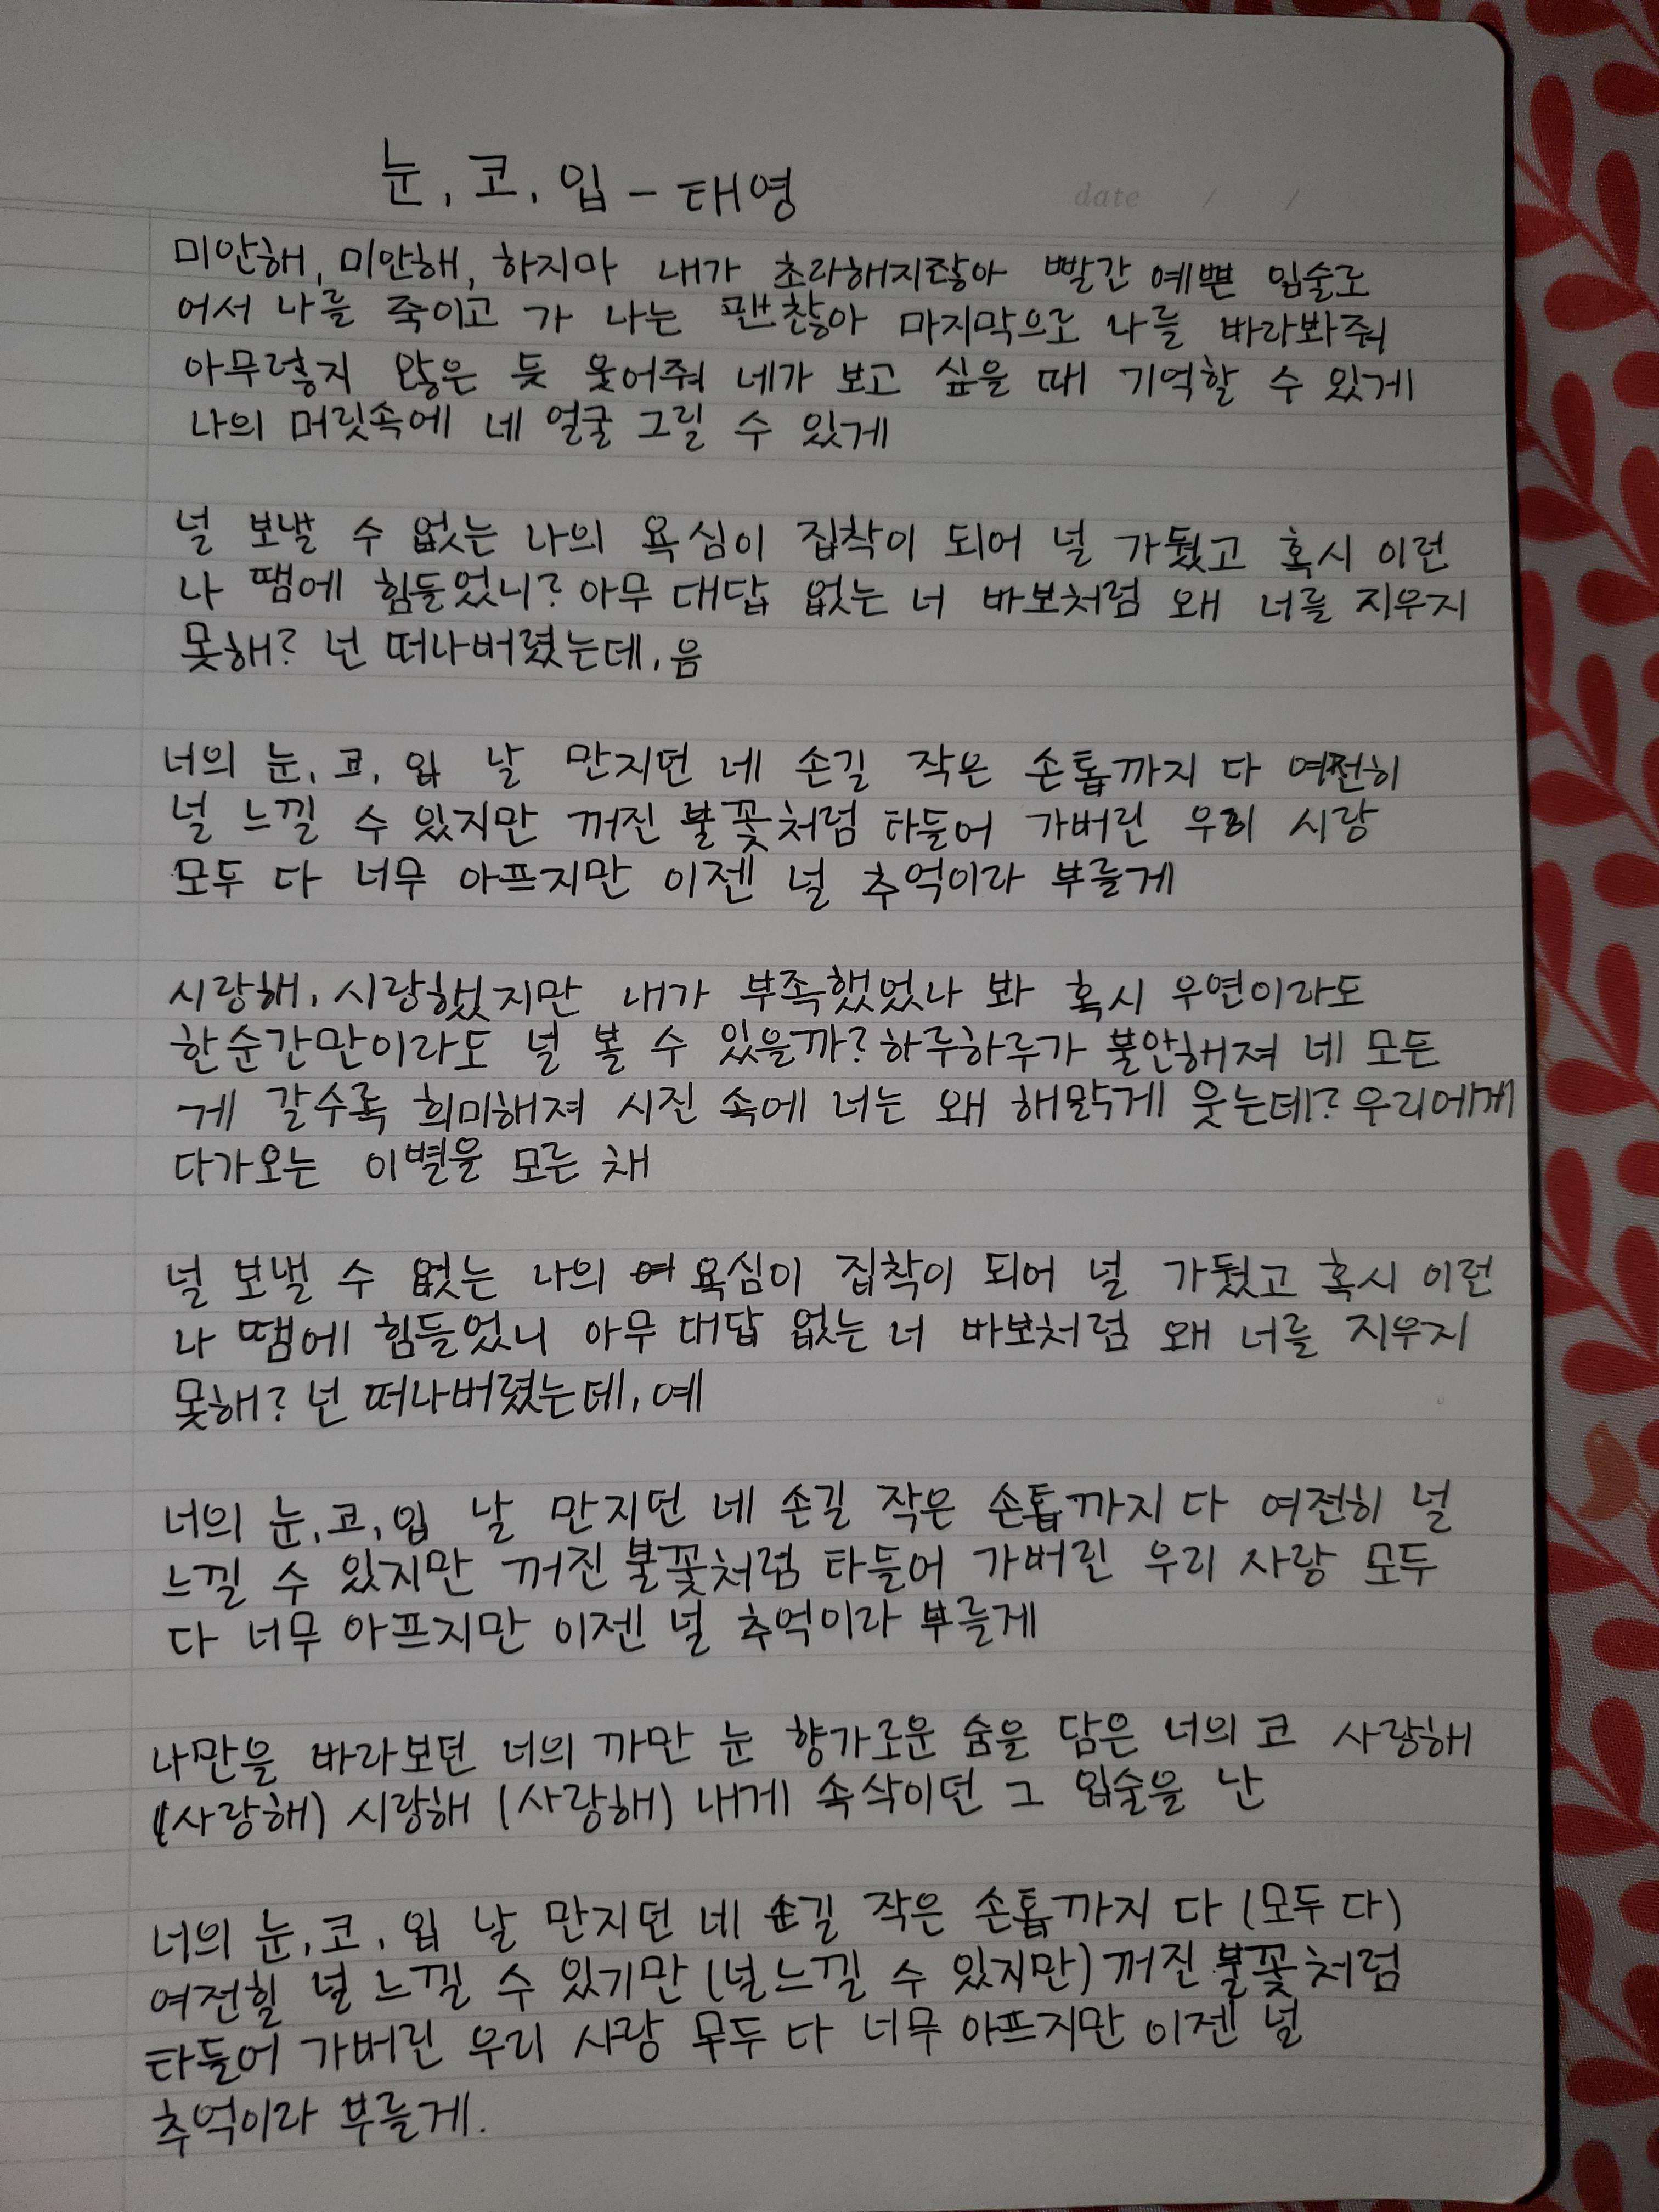 눈, 코, 입 - 태영
date / /
미안해, 미안해, 하지마 내가 초라해지잖아 빨간 예쁜 입술로
어서 나를 죽이고 가 나는 괜찮아 마지막으로 나를 바라봐줘
아무렇지 않은 듯 웃어줘 네가 보고 싶을 때 기억할 수 있게
나의 머릿속에 네 얼굴 그릴 수 있게
널 보낼 수 없는 나의 욕심이 집착이 되어 널 가뒀고 혹시 이런
나 땜에 힘들었니? 아무 대답 없는 너 바보처럼 왜 너를 지우지
못해? 넌 떠나버렸는데, 음
너의 눈, 코, 입 날 만지던 네 손길 작은 손톱까지 다 여전히
널 느낄 수 있지만 꺼진 불꽃처럼 타들어 가버린 우리 시랑
모두 다 너무 아프지만 이젠 널 추억이라 부를게
시랑해, 시랑했지만 내가 부족했었나 봐 혹시 우연이라도
한순간만이라도 널 볼 수 있을까? 하루하루가 불안해져 네 모든
게 갈수록 희미해져 시진 속에 너는 왜 해맑게 웃는데? 우리에게
다가오는 이별을 모른 채
널 보낼 수 없는 나의 욕심이 집착이 되어 널 가뒀고 혹시 이런
나 땜에 힘들었니 아무 대답 없는 너 바보처럼 왜 너를 지우지
못해? 넌 떠나버렸는데, 예
너의 눈, 코, 입 날 만지던 네 손길 작은 손톱까지 다 여전히 널
느낄 수 있지만 꺼진 불꽃처럼 타들어 가버린 우리 사랑 모두
다 너무 아프지만 이젠 널 추억이라 부를게
나만을 바라보던 너의 까만 눈 향가로운 숨을 담은 너의 코 사랑해
(사랑해) 시랑해 (사랑해) 내게 속삭이던 그 입술을 난
너의 눈, 코, 입 날 만지던 네 손길 작은 손톱까지 다 (모두 다)
여전힐 널 느낄 수 있기만 (널 느낄 수 있지만) 꺼진 불꽃처럼
타들어 가버린 우리 사랑 모두 다 너무 아프지만 이젠 널
추억이라 부를게.